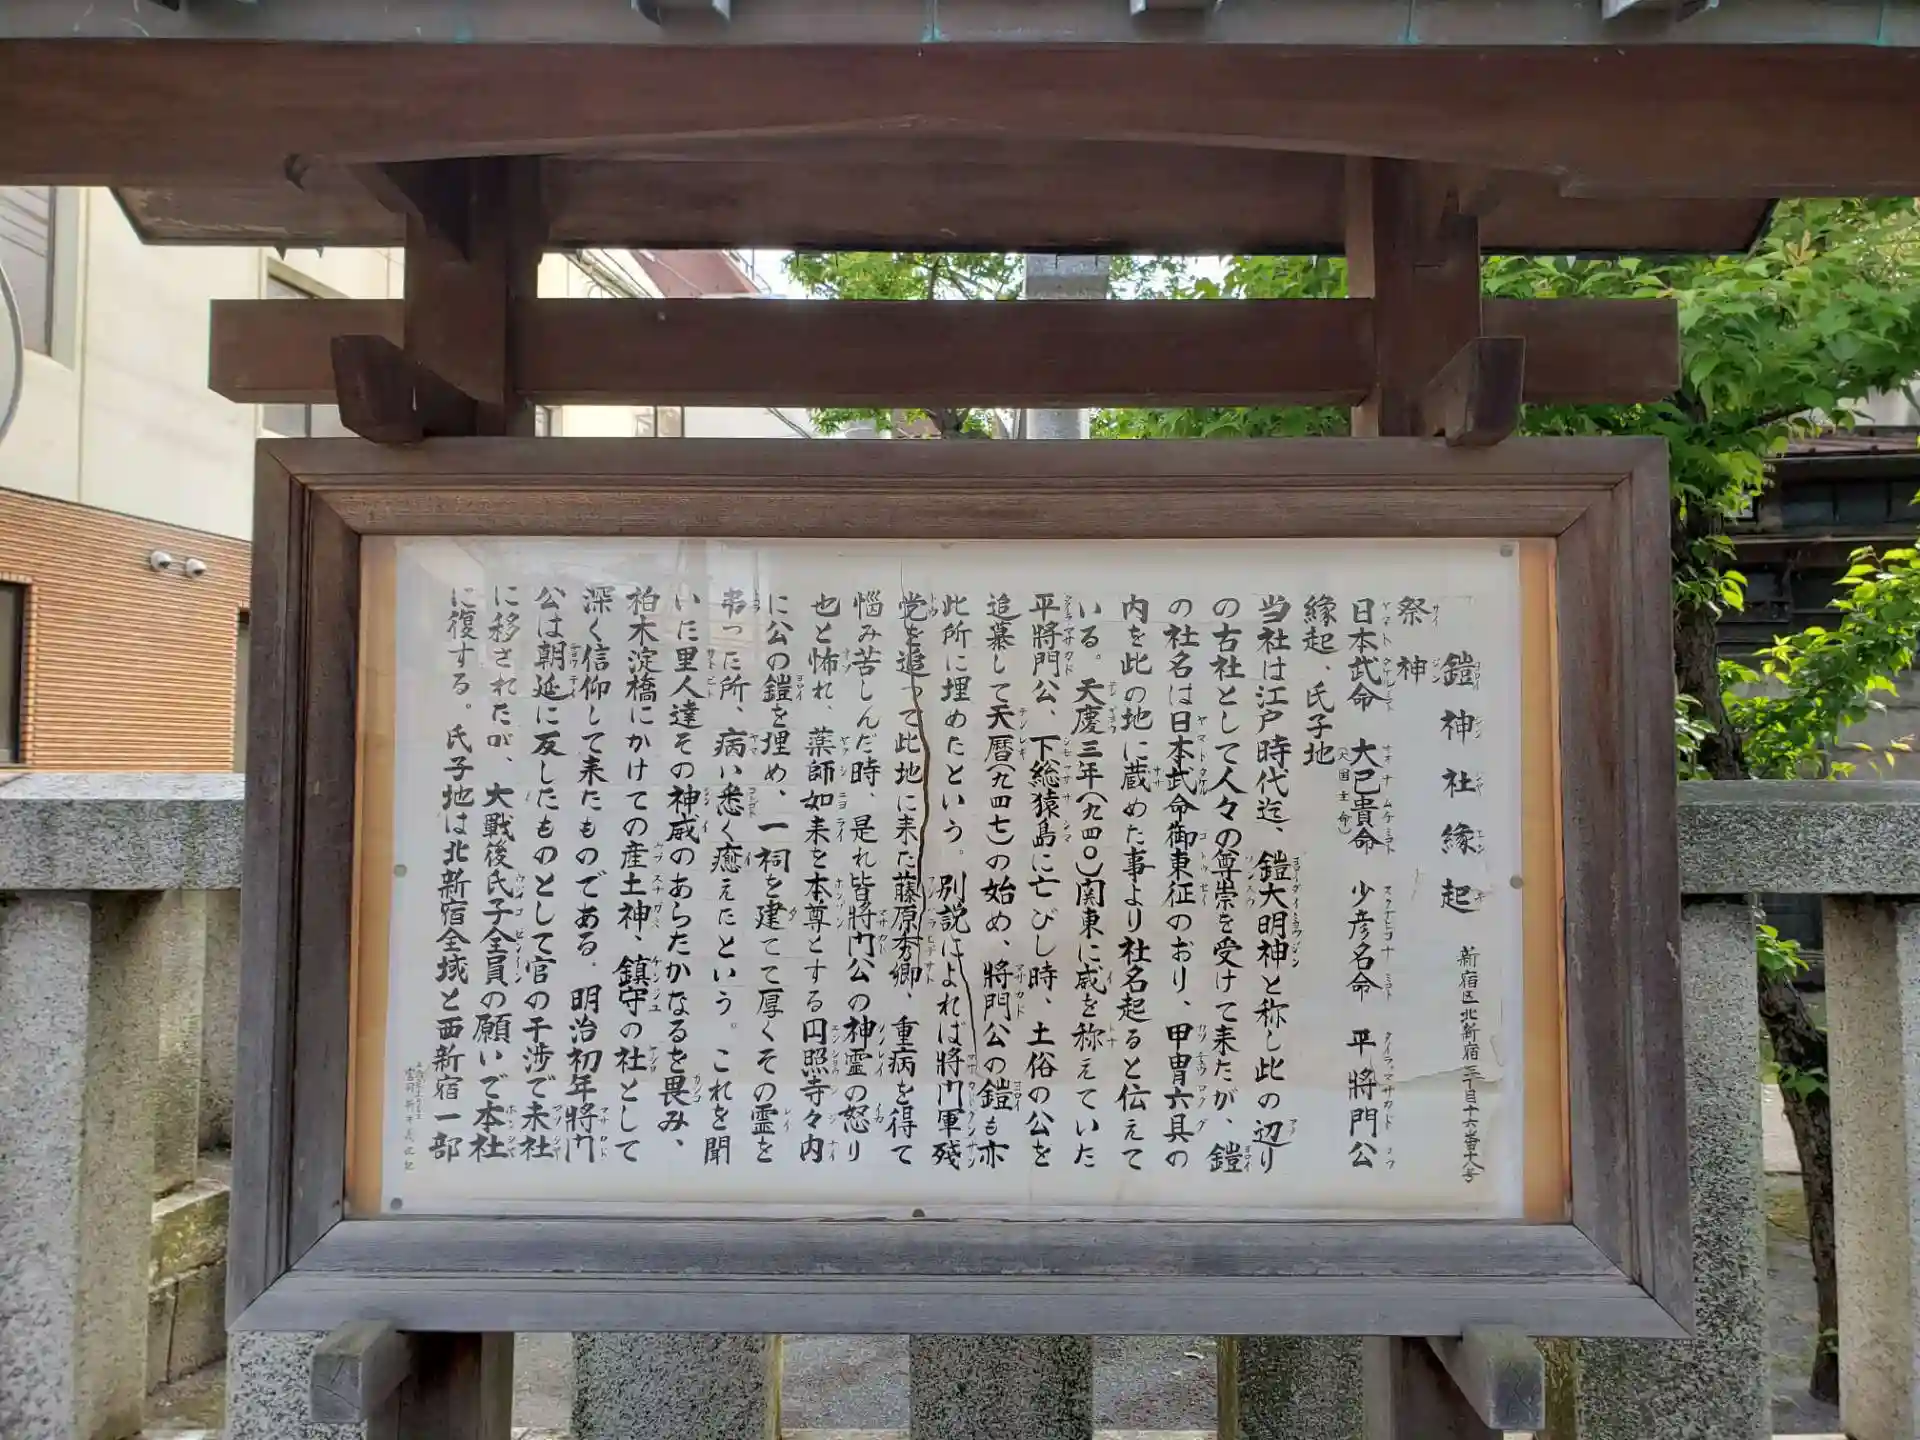 鎧神社縁起 新宿区北新宿三丁目十六番十八号
祭神
日本武命 大己貴命(大国主命) 少彦名命 平将門公
縁起、氏子地
当社は江戸時代迄、鎧大明神と称し此の辺り
の古社として人々の尊崇を受けて来たが、鎧
の社名は日本武命御東征のおり、甲冑六具の
内を此の地に蔵めた事より社名起ると伝えて
いる。天慶三年(九四〇)関東に威を称えていた
平將門公、下総猿島に亡びし時、土俗の公を
追慕して天暦(九四七)の始め、將門公の鎧も亦
此所に埋めたという。別説によれば將門軍残
党を追って此地に来た藤原秀郷、重病を得て
悩み苦しんだ時、是れ皆將門公の神霊の怒り
也と怖れ、薬師如来を本尊とする円照寺々内
に公の鎧を埋め、一祠を建てて厚くその霊を
弔った所、病い悉く癒えたという。これを聞
いに里人達その神威のあらたかなるを畏み、
柏木淀橋にかけての産土神、鎮守の社として
深く信仰して来たものである。明治初年將門
公は朝廷に反したものとして官の干渉で末社
に移されたが、大戰後氏子全員の願いで本社
に復する。氏子地は北新宿全域と西新宿一部